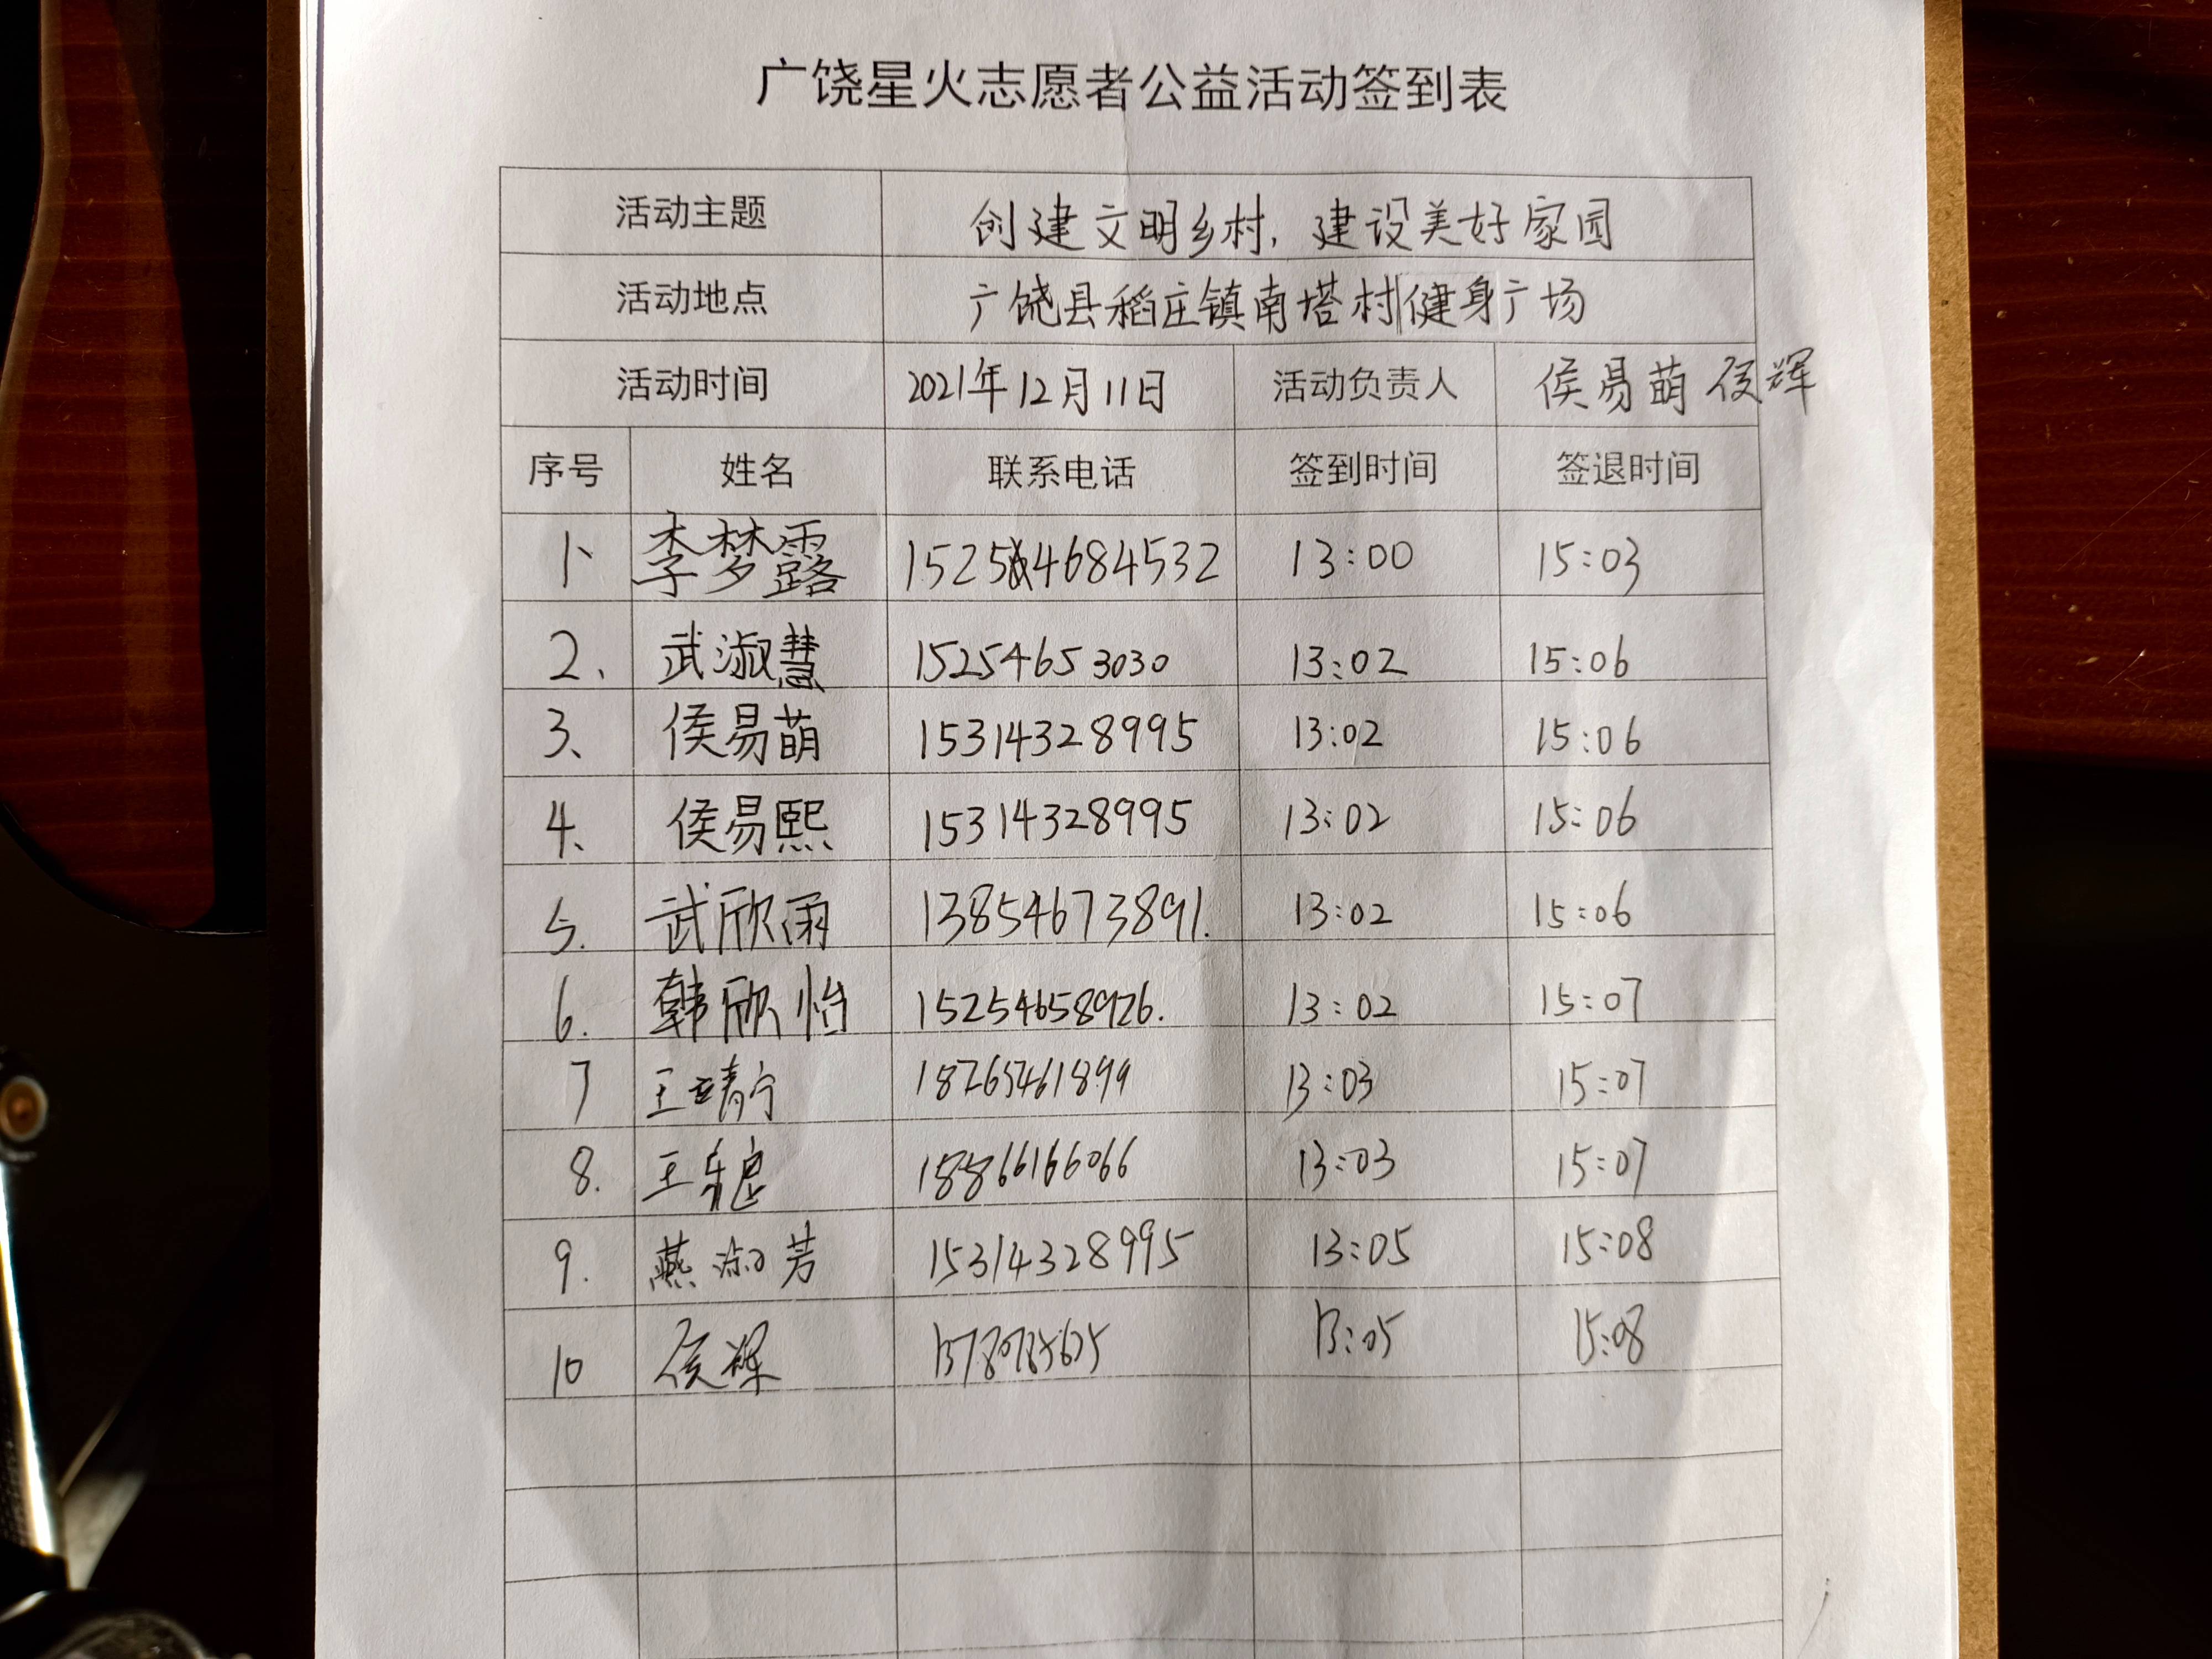 广饶星火志愿者公益活动签到表
活动主题 创建文明乡村，建设美好家园
活动地点 广饶县稻庄镇南塔村健身广场
活动时间 2021年12月11日 活动负责人 侯易萌 侯辉
序号 姓名 联系电话 签到时间 签退时间
1、 李梦露 15254684532 13:00 15:03
2、 武淑慧 15254653030 13:02 15:06
3、 侯易萌 15314328995 13:02 15:06
4、 侯易熙 15314328995 13:02 15:06
5. 武欣雨 13854673891. 13:02 15:06
6. 韩欣怡 15254658926. 13:02 15:07
7 王靖宁 18765461899 13:03 15:07
8. 王 18866166066 13:03 15:07
9. 燕淑芳 15314328995 13:05 15:08
10 侯辉 13:05 15:08